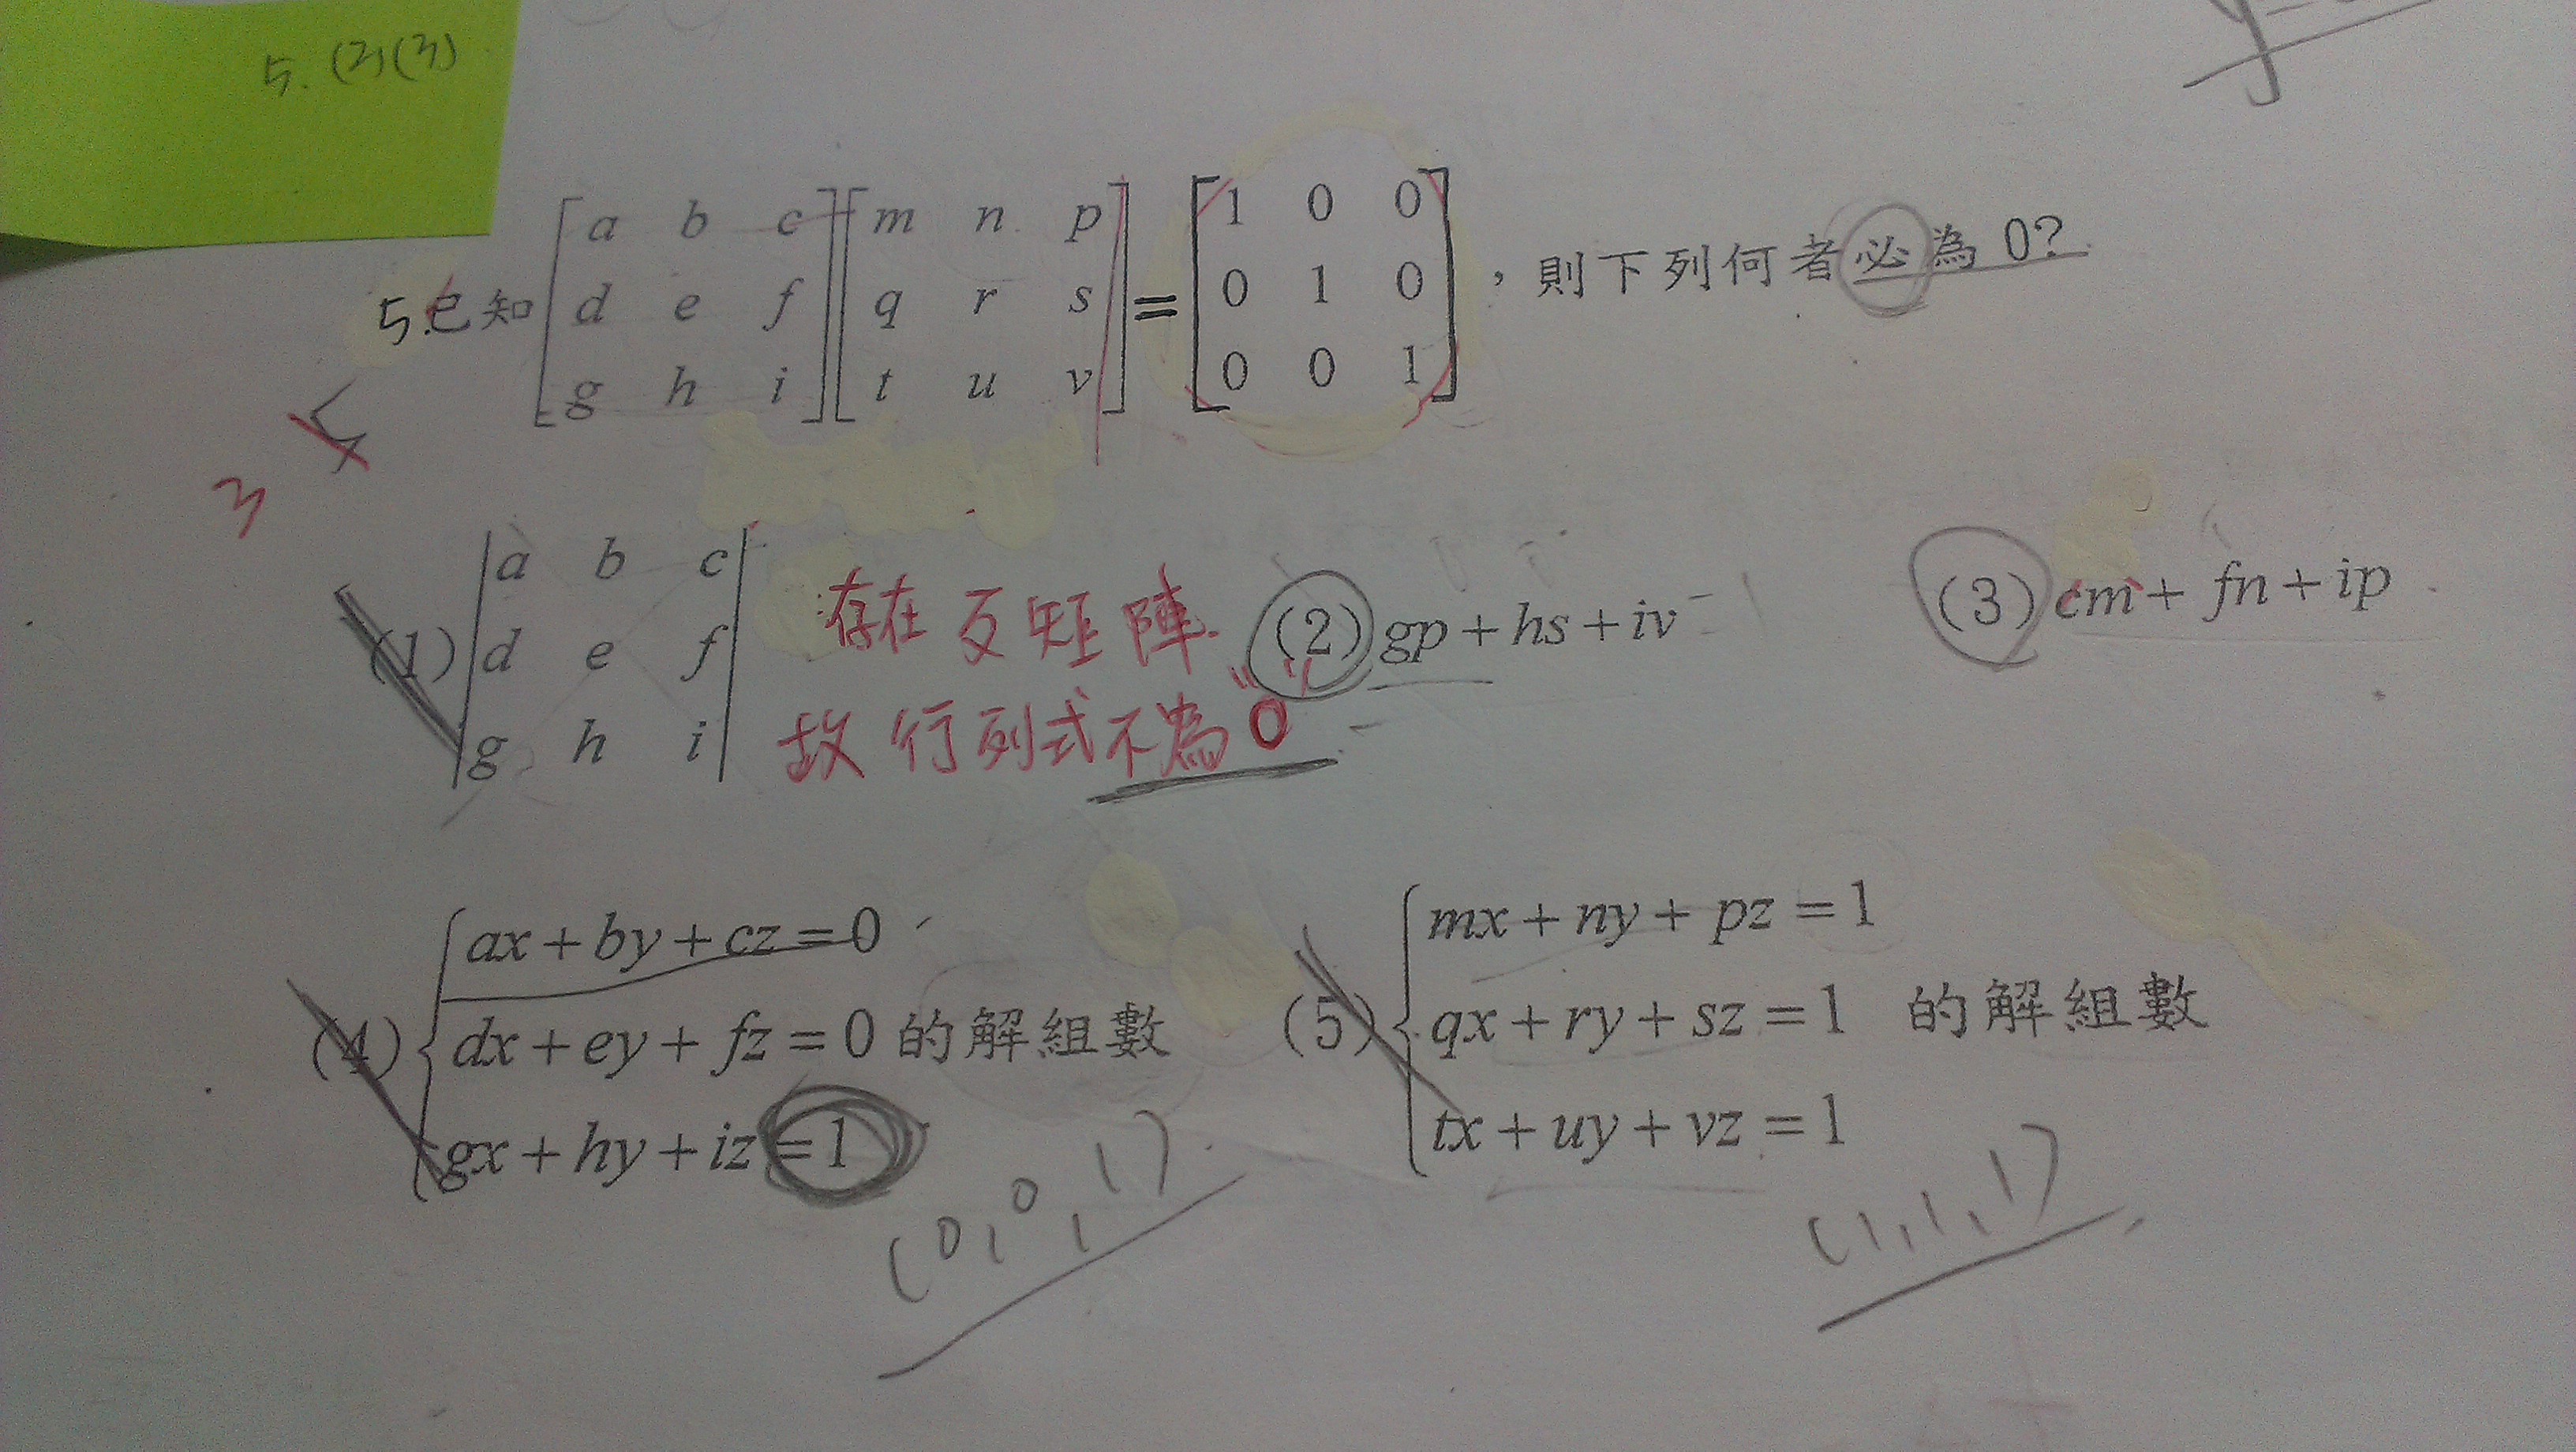 5. (2)(3)
5.已知 [a b c; d e f; g h i] [m n p; q r s; t u v] = [1 0 0; 0 1 0; 0 0 1]，則下列何者必為 0?
5
3
(1) |a b c; d e f; g h i|
存在反矩陣.
故行列式不為"0"
(2) gp + hs + iv = 1
(3) cm + fn + ip
(4) { ax + by + cz = 0
dx + ey + fz = 0 的解組數
gx + hy + iz = 1
(0, 0, 1)
(5) { mx + ny + pz = 1
qx + ry + sz = 1 的解組數
tx + uy + vz = 1
(1, 1, 1)